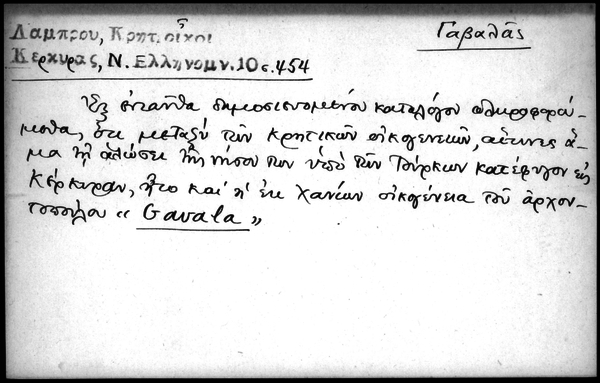 Γαβαλᾶς
Λαμπρου, Κρητ. οἶκοι
Κερκυρας, Ν. Ελληνομν. 10 σ. 454
Ἐξ ἐνταῦθα δημοσιευομένου καταλόγου πληροφορού-
μεθα, ὅτι μεταξὺ τῶν κρητικῶν οἰκογενειῶν, αἵτινες ἅ-
μα τῇ ἁλώσει τῆς νήσου των ὑπὸ τῶν Τούρκων κατέφυγον εἰς
Κέρκυραν, ἦτο καὶ ἡ ἐκ Χανίων οἰκογένεια τοῦ ἀρχον-
τοπούλου « Gavala »